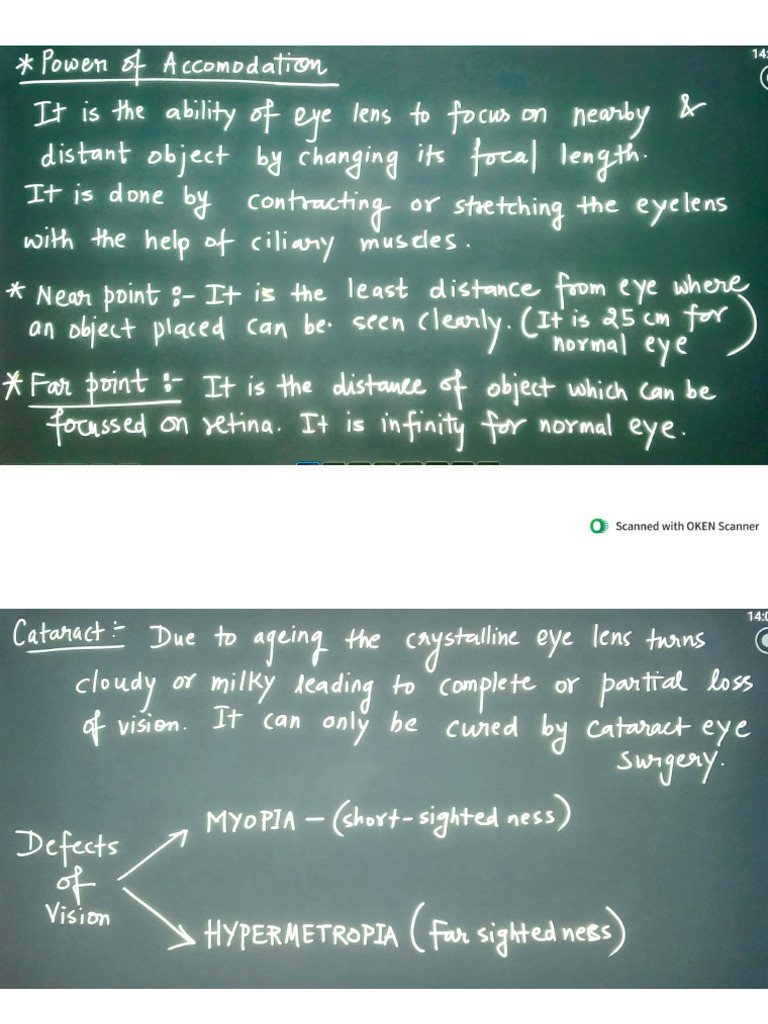 14:
* Power of Accomodation
It is the ability of eye lens to focus on nearby &
distant object by changing its focal length.
It is done by contracting or stretching the eyelens
with the help of ciliary muscles.
* Near point :- It is the least distance from eye where
an object placed can be seen clearly. (It is 25 cm for
normal eye)
* Far point :- It is the distance of object which can be
focussed on retina. It is infinity for normal eye.
Scanned with OKEN Scanner
14:0
Cataract :- Due to ageing the crystalline eye lens turns
cloudy or milky leading to complete or partial loss
of vision. It can only be cured by cataract eye
surgery.
MYOPIA – (short-sightedness)
Defects
of
Vision
HYPERMETROPIA (Far sightedness)